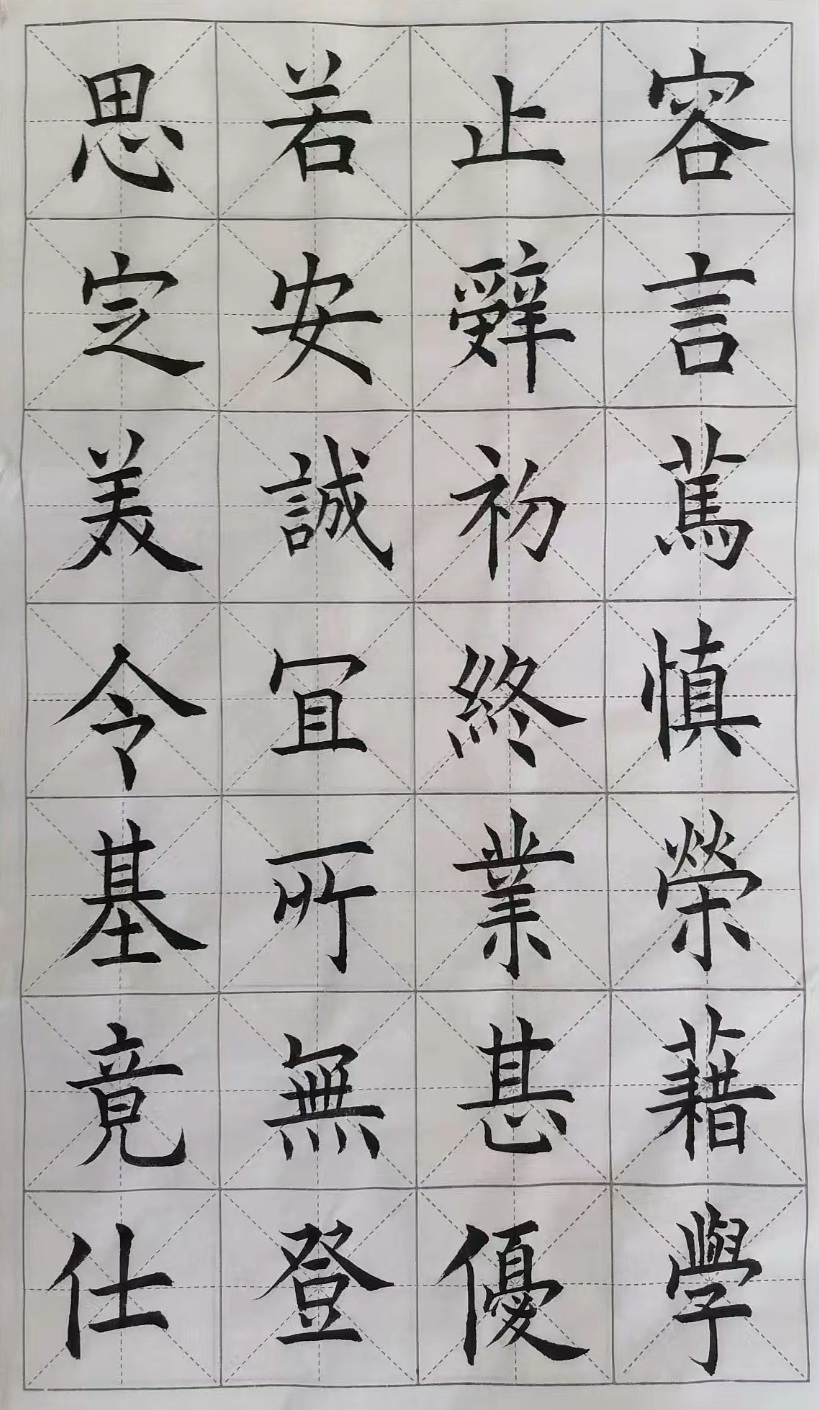 容止若思
言辭安定
篤初誠美
慎終宜令
榮業所基
藉甚無竟
學優登仕